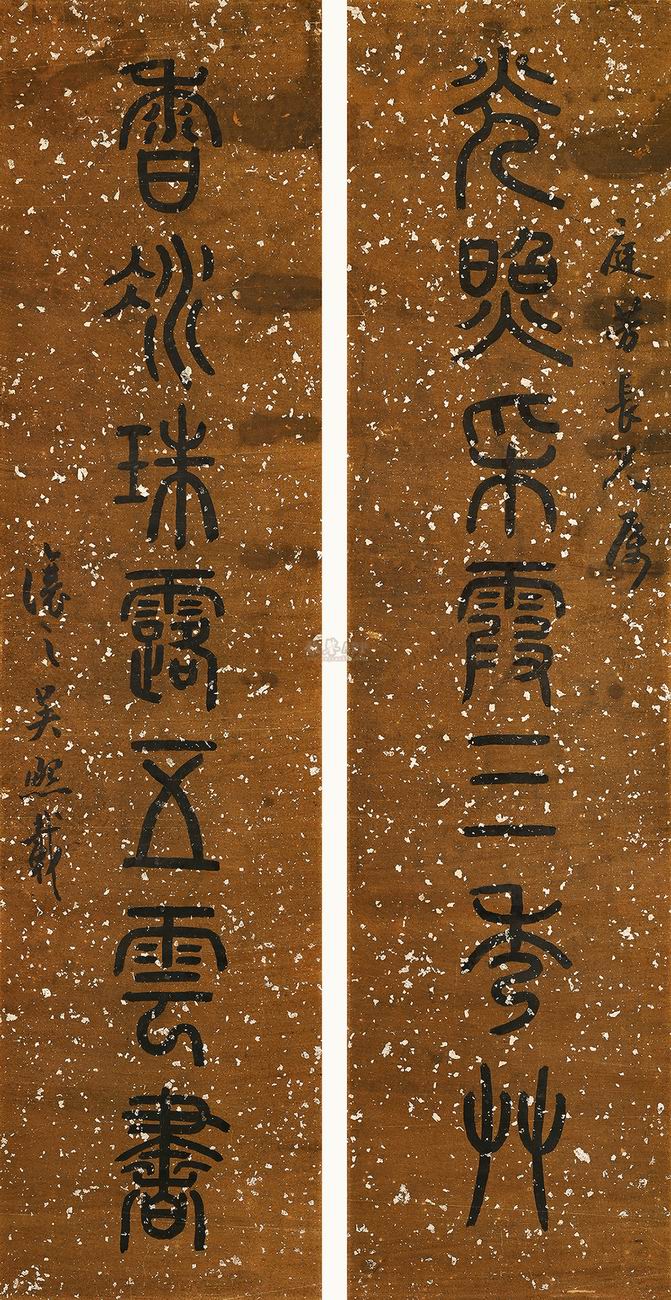 光照采霞三秀艸
庭芳長兄屬
香冰珠露五雲書
讓之吳熙載